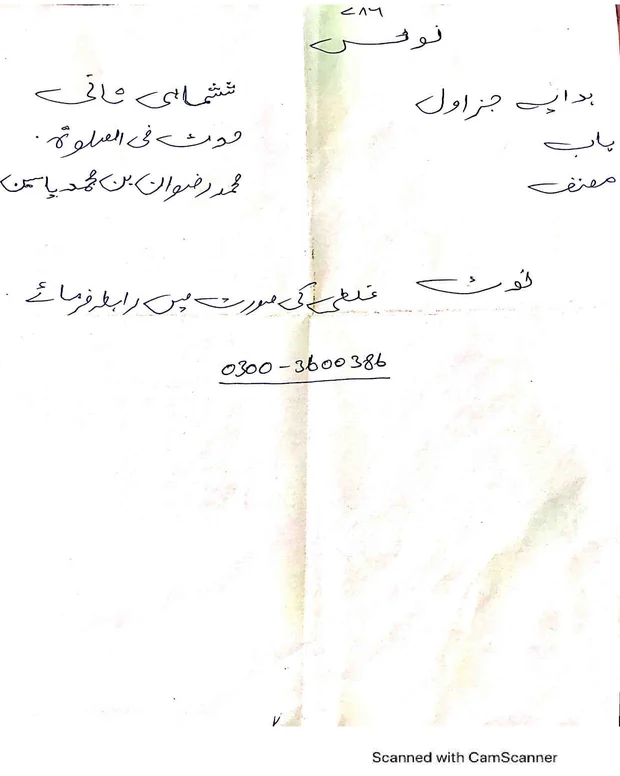 ۷۸۶
نوٹس
ہدایہ جز اول ششماہی ثانی
باب حدث فی الصلوۃ
مصنف محمد رضوان بن محمد یاسین
نوٹ غلطی کی صورت میں رابطہ فرمائے
0300-3600386
Scanned with CamScanner